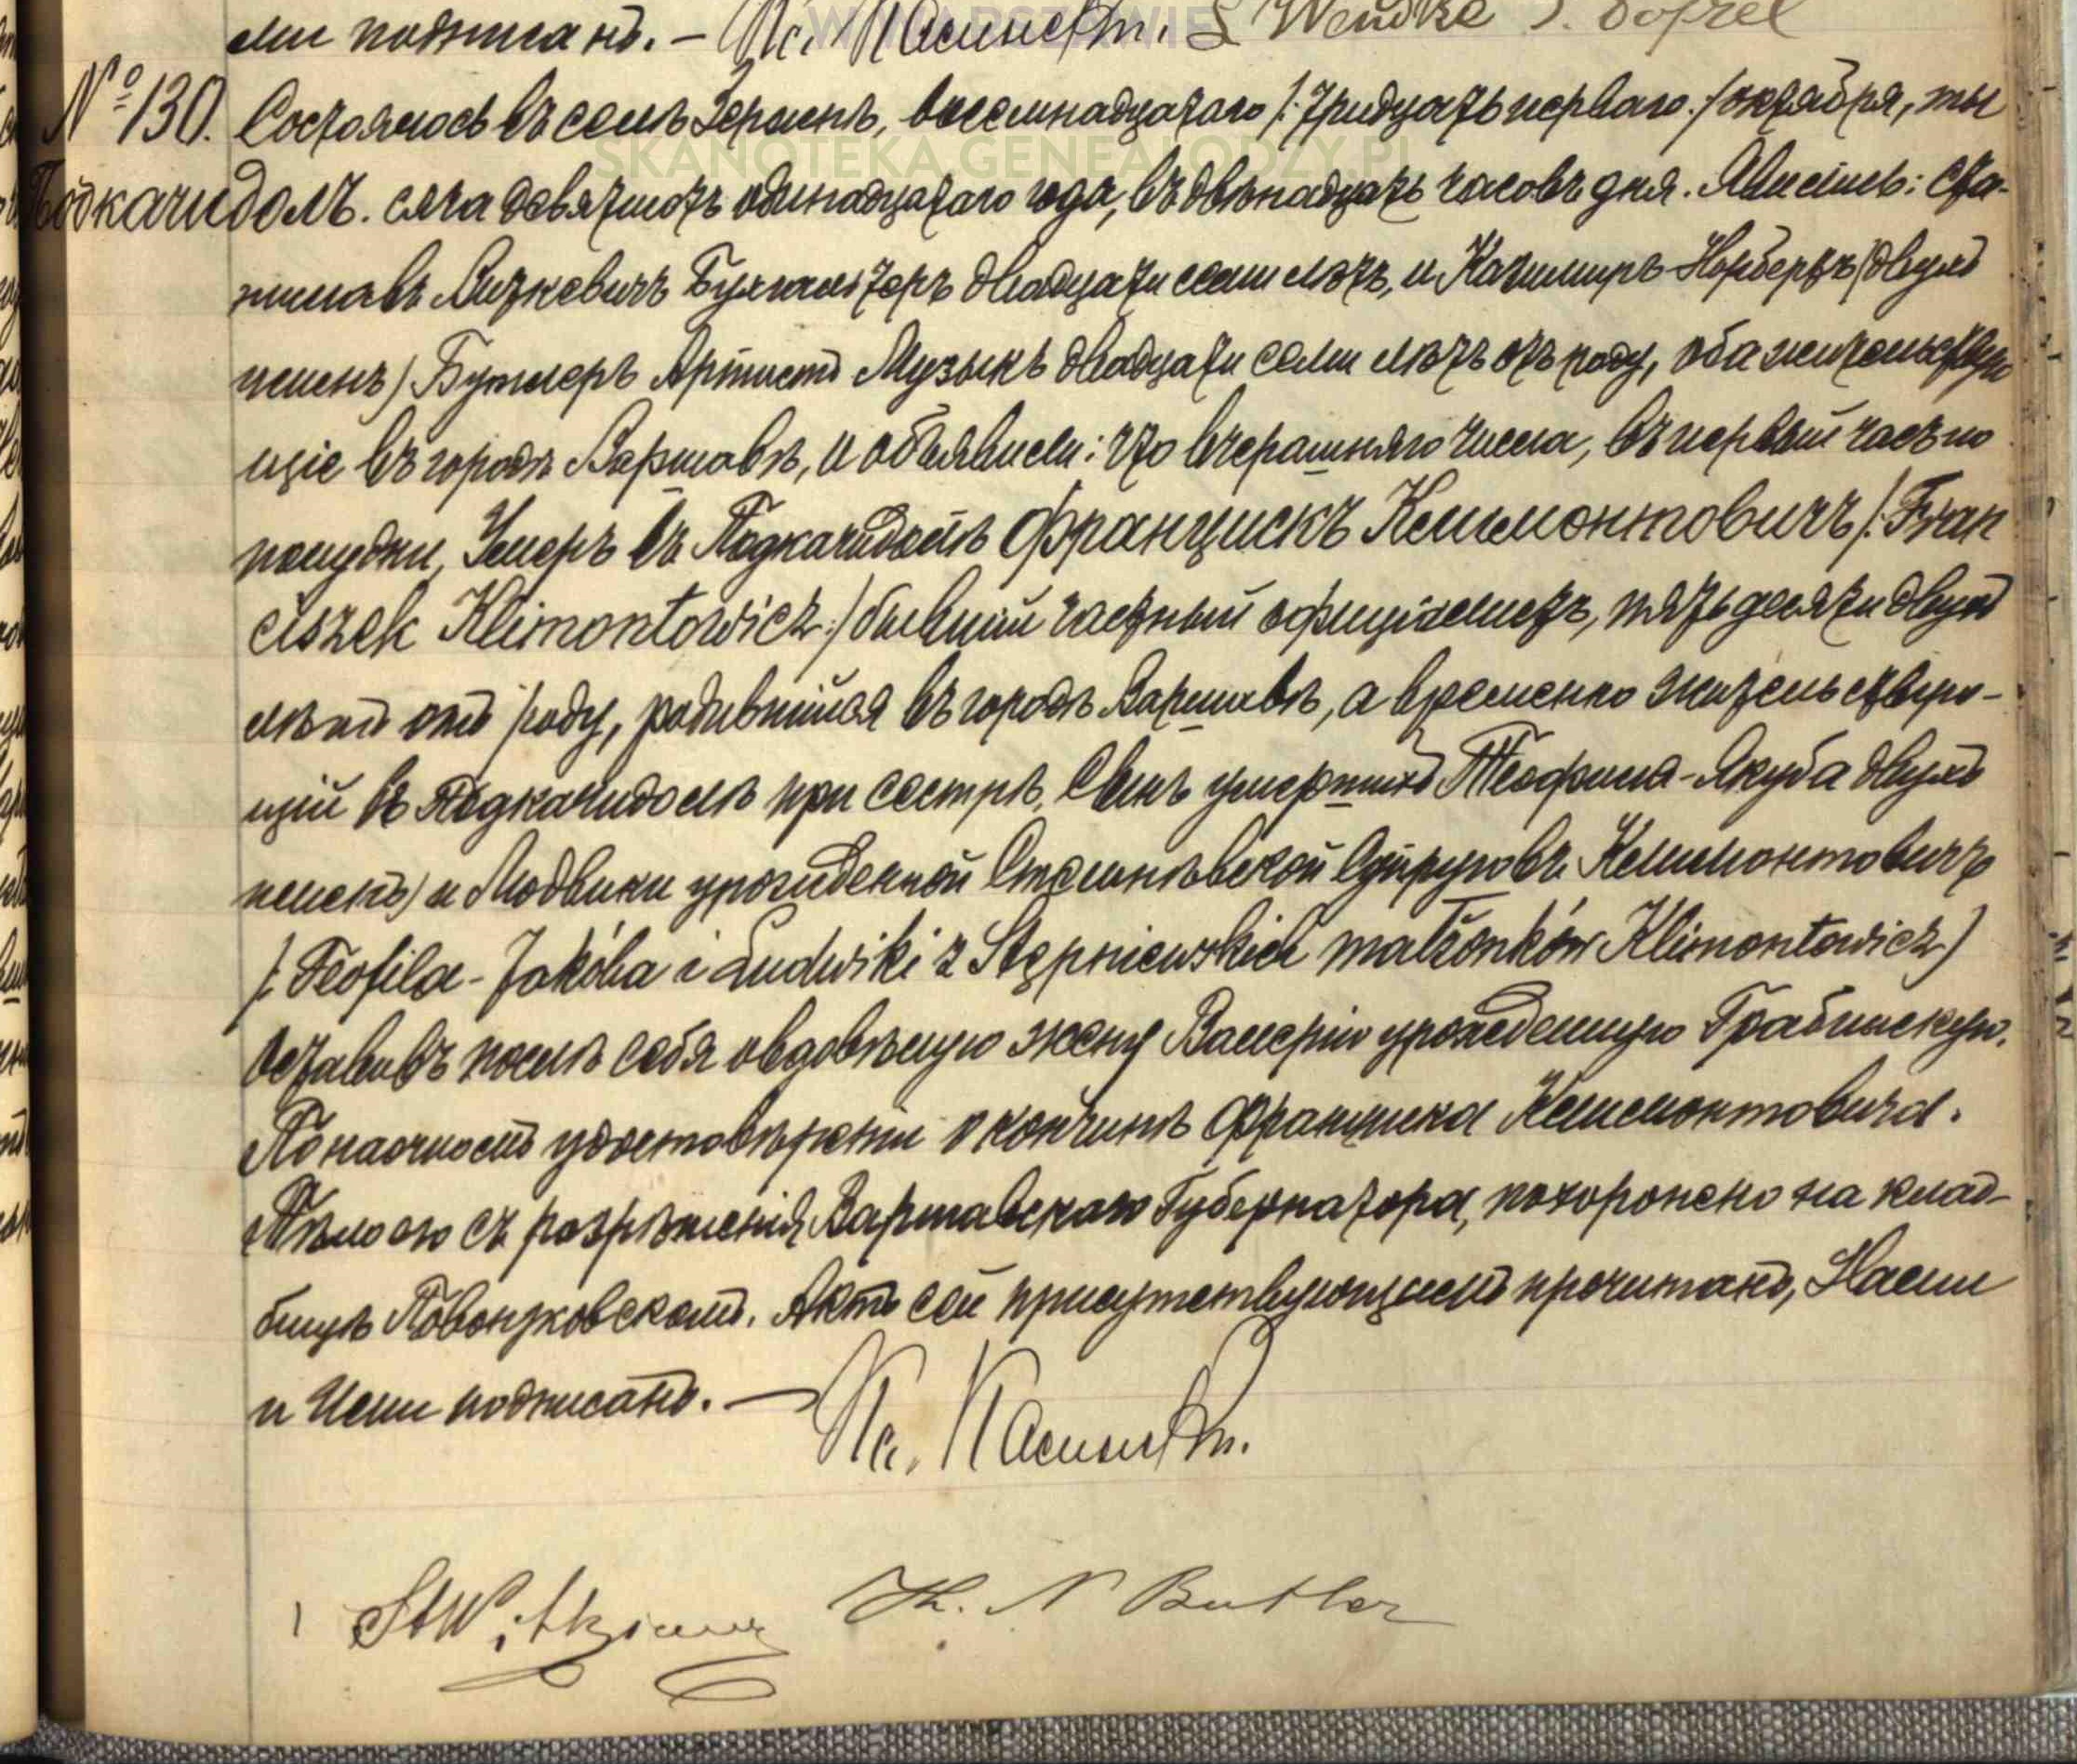 ми подписанъ. — Кс. L Wendke J.
W WARSZAWIE
№ 130. Состоялось въ селѣ Зерзенѣ, восемнадцатаго /:тридцать перваго:/ октября, ты
SKANOTEKA.GENEALODZY.PL
Подкачидолъ. сяча девятьсотъ одинадцатаго года, въ двѣнадцать часовъ дня. Явились: Ста-
ниславъ Виткевичъ Бухгалтеръ двадцати семи лѣтъ, и Казимиръ-Норбертъ (двухъ
именъ) Бутлеръ Артистъ Музыкъ двадцати семи лѣтъ отъ роду, оба жительствую
щіе въ городѣ Варшавѣ, и объявили: что вчерашняго числа, въ первый часъ по
полудни, Умеръ въ Подкачидолѣ Францискъ Климонтовичъ /:Fran
ciszek Klimontowicz:/ бывшій частный оффиціалистъ, пятьдесяти двухъ
лѣтъ отъ роду, родившійся въ городѣ Варшавѣ, а временно жительствую-
щій въ Подкачидолѣ при сестрѣ, Сынъ умершихъ Теофила-Якуба двухъ
именъ) и Людвики урожденной Стемпнѣвской Супруговъ Климонтовичъ
/: Teofila-Jakóba i Ludwiki z Stępniewskich małżonków Klimontowicz)
Оставивъ послѣ себя овдовѣлую жену Валерію урожденную Грабинскую.
По наочномъ удостовѣреніи о кончинѣ Франциска Климонтовича.
Тѣло его съ разрѣшенія Варшавскаго Губернатора, похоронено на клад-
бищѣ Повонзковскомъ. Актъ сей присутствующимъ прочитанъ, Нами
и Ими подписанъ. — Кс.
St Witkiewicz K. N Butler